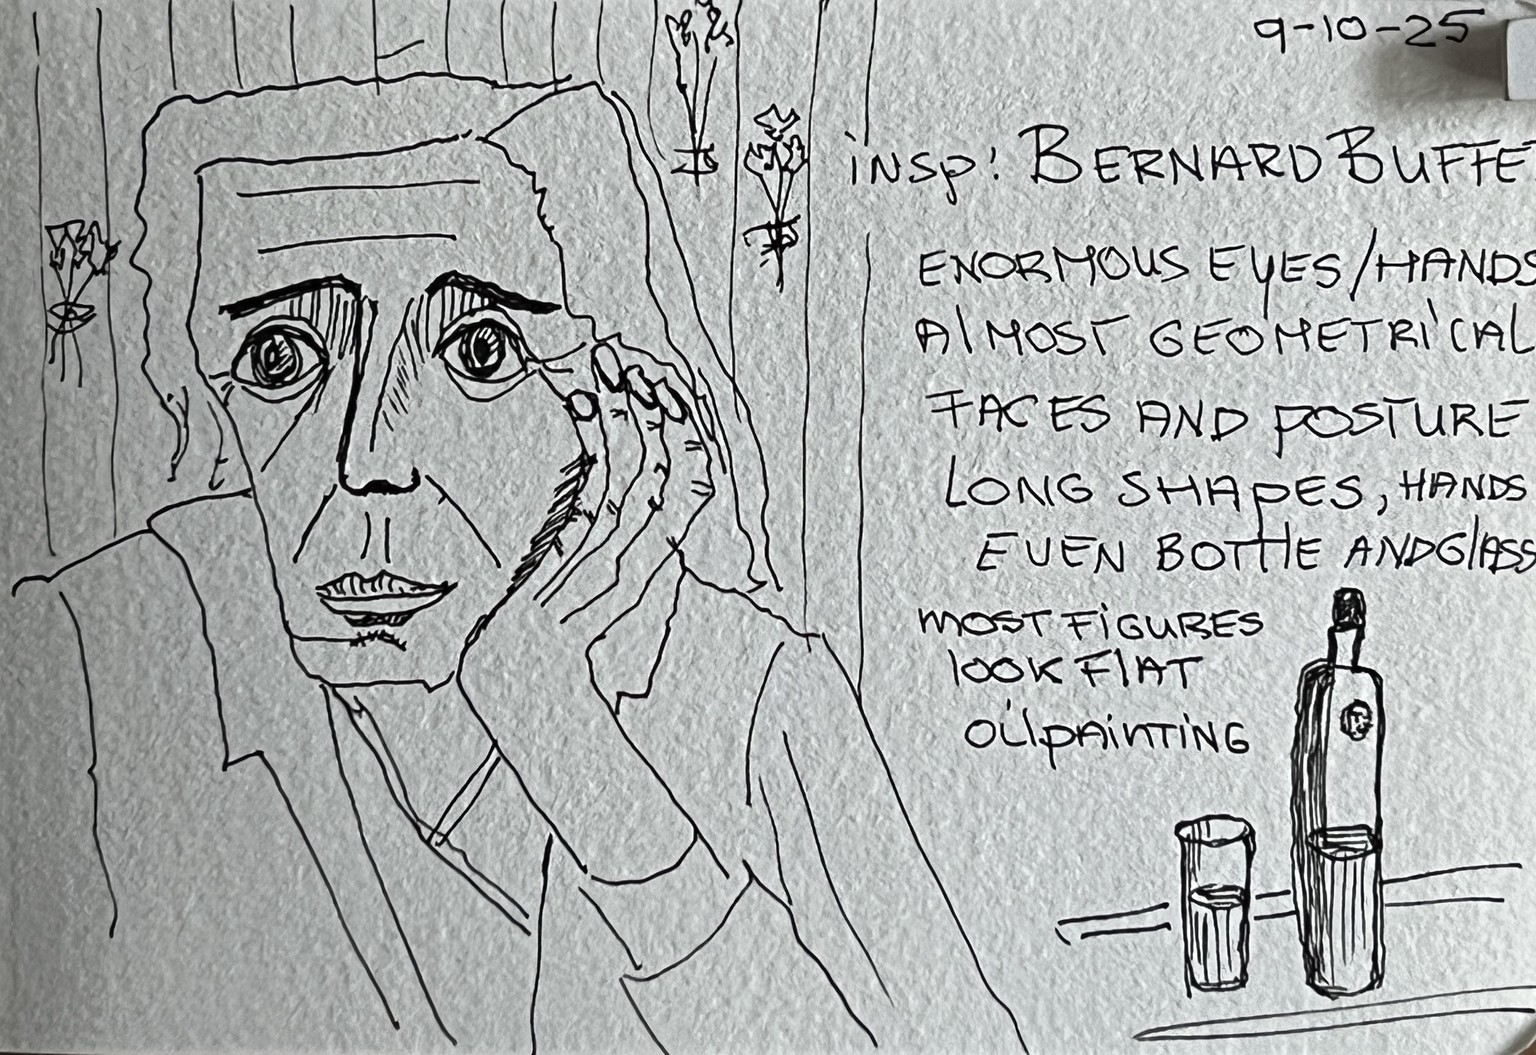 9-10-25
insp: BERNARD BUFFET
ENORMOUS EYES/HANDS
AlMOST GEOMETRICAL
FACES AND POSTURE
LONG SHAPES, HANDS
EVEN BOTTlE AND GlASS
MOST FIGURES
lOOK FlAT
OilpAiNTiNG